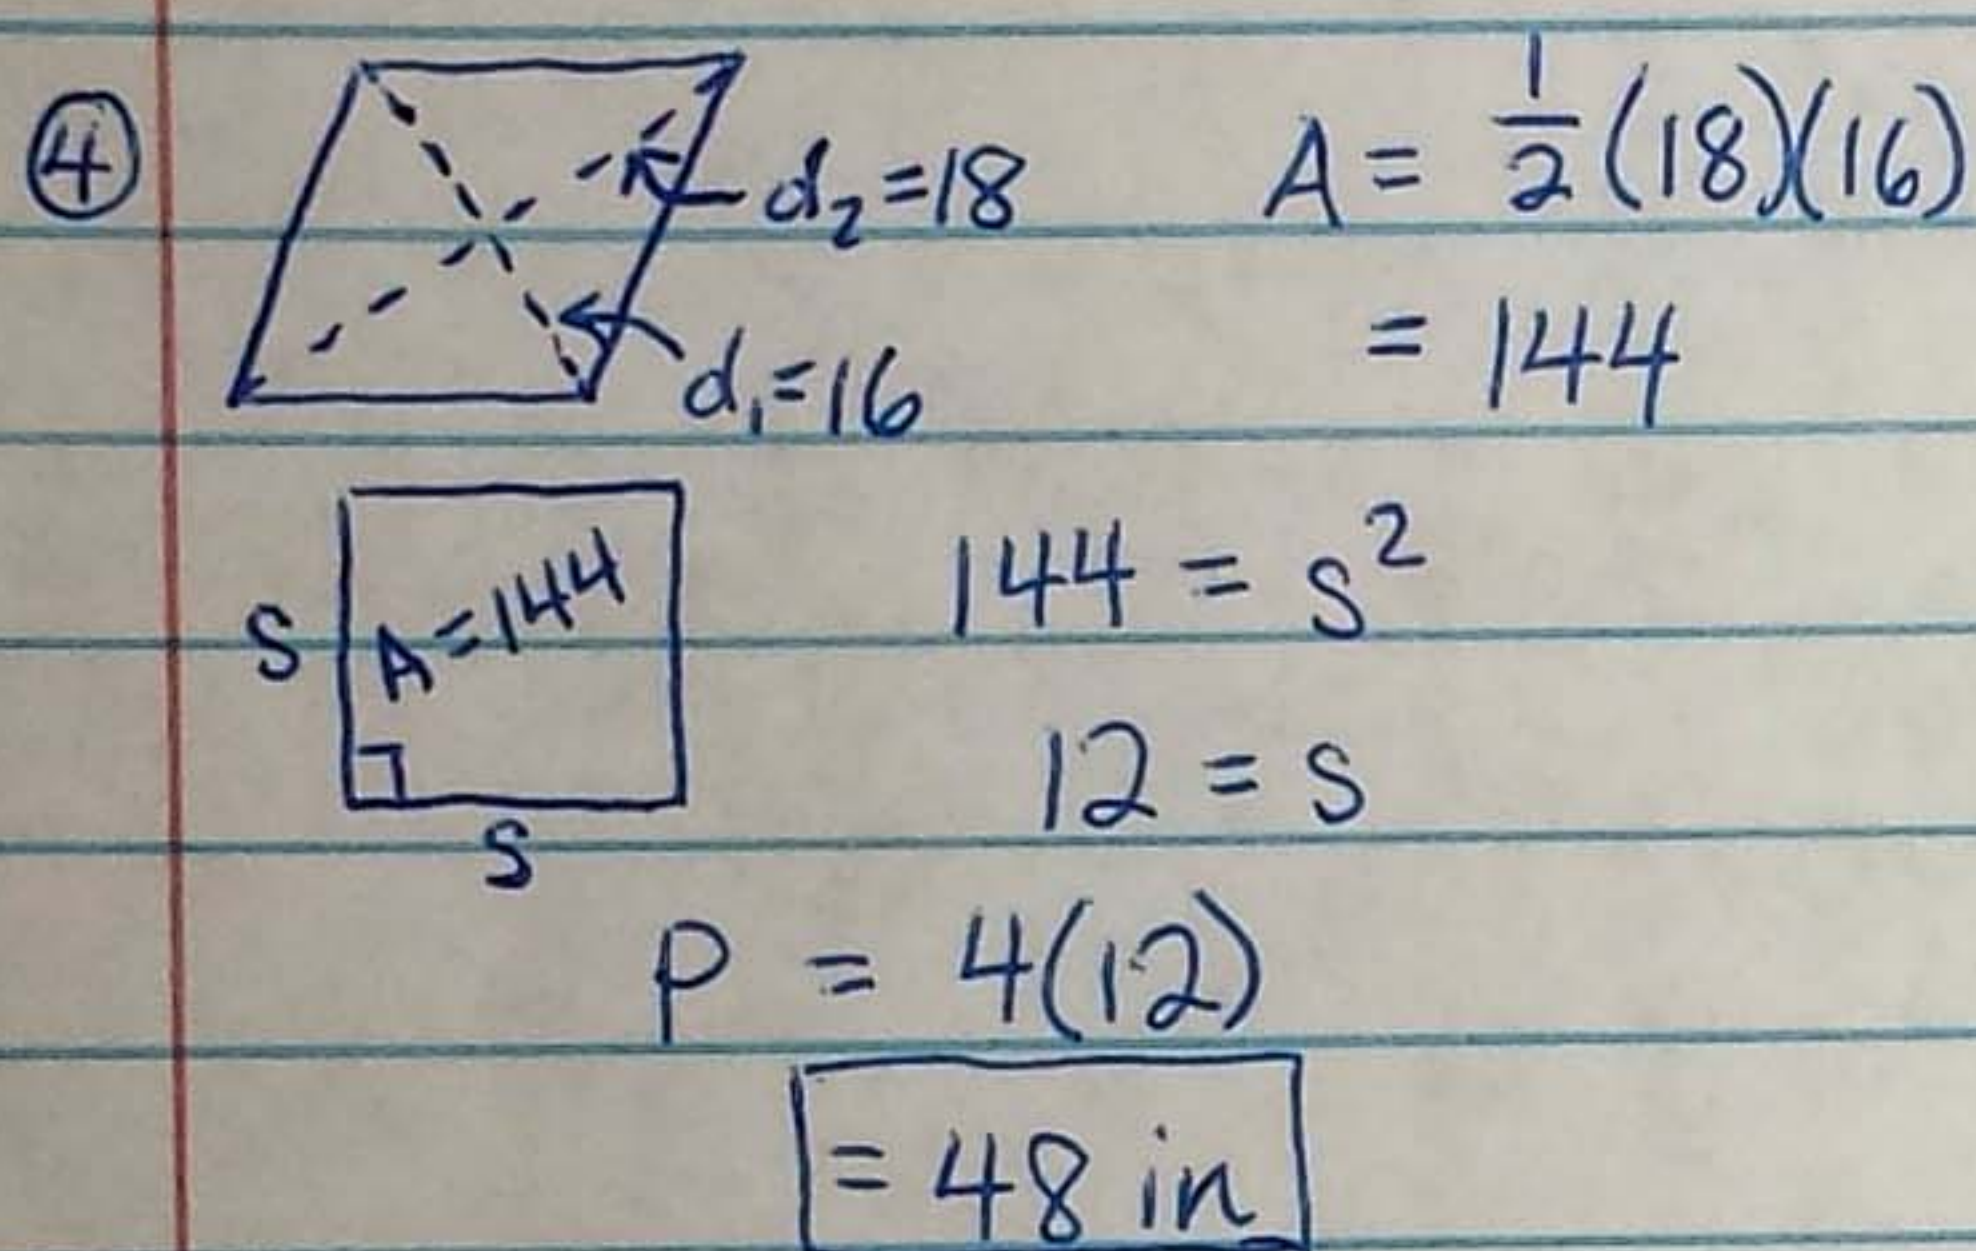 ④
d₂=18
A = 1/2 (18)(16)
d₁=16
= 144
S
A=144
S
144 = s²
12 = s
P = 4(12)
= 48 in